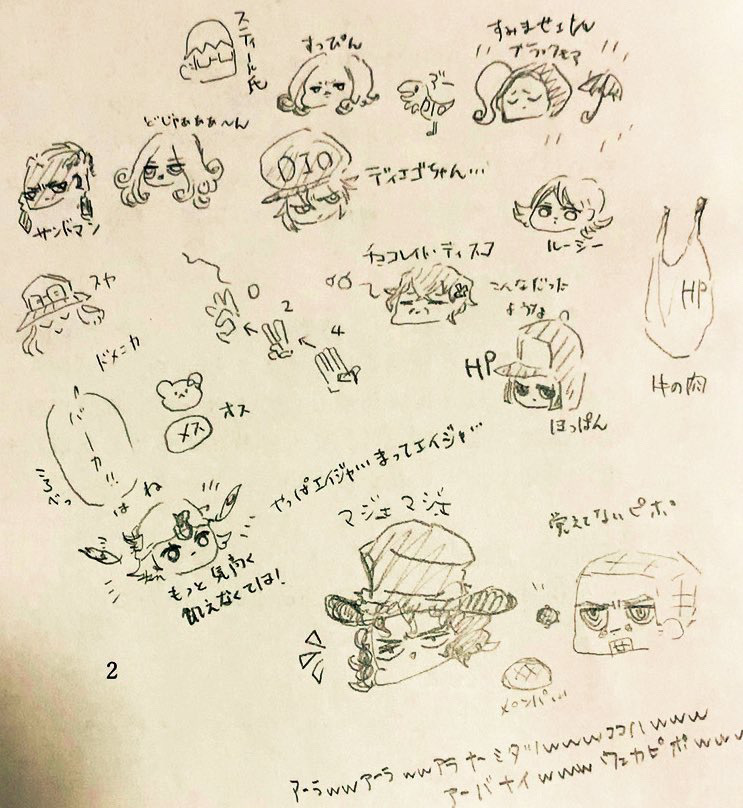 スティール氏
すっぴん
すみませェん
ブラックモア
どじゃぁぁぁ〜ん
DIO
DIO
ディエゴちゃん…
サンドマン
2
ルーシー
スヤ
チョコレイト・ディスコ
こんなだった
ような
HP
HP
牛の肉
ほっぱん
0
2
4
ドメニカ
オス
メス
バーカ!!
やっぱエイジャ… まってエイジャ…
もっと気高く
飢えなくては!
マジェマジェ
覚えてないピボ
メロンパ…
2
アーラwwアーラww
アーバナイwww